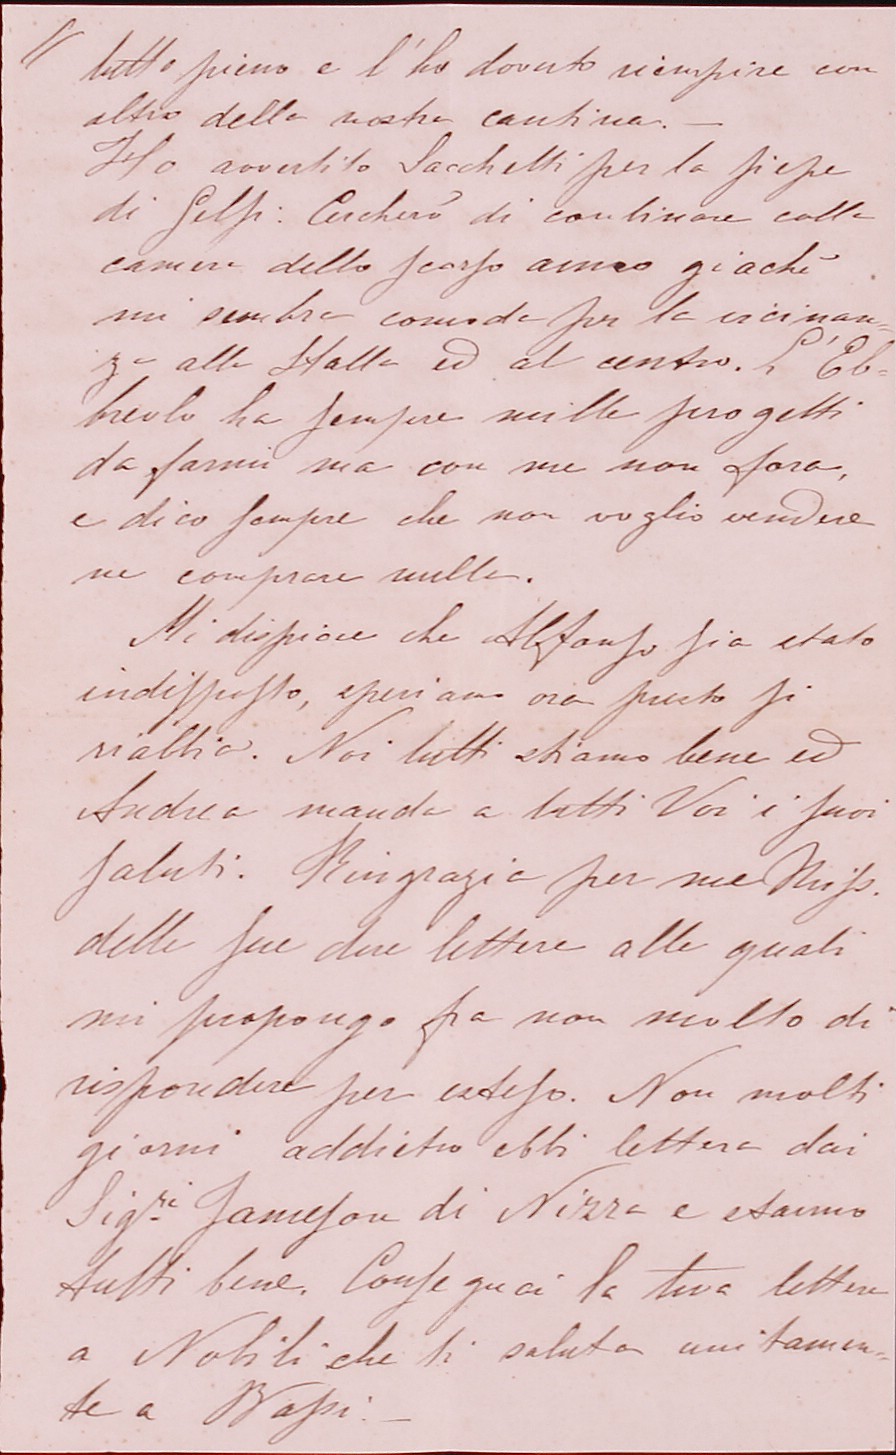 tutto pieno e l'ho dovuto riempire con
altro della nostra cantina. —
Ho avvertito Sacchetti per la siepe
di Gelsi: Cercherò di continuare colla
camera dello scorso anno giachè
mi sembra comoda per la vicinan-
za alla Stalla ed al centro. L'Eb-
breolo ha sempre mille progetti
da farmi ma con me non fora,
e dico sempre che non voglio vendere
ne comprare nulla.
Mi dispiace che Alfonso sia stato
indisposto, speriamo ora presto si
rialzi. Noi tutti stiamo bene ed
Andrea manda a tutti Voi i suoi
saluti. Ringrazia per me Miss.
delle sue due lettere alle quali
mi propongo fra non molto di
rispondere per esteso. Non molti
giorni addietro ebbi lettera dai
Sig.ri Jameson di Nizza e stanno
tutti bene. Consegnai la tua lettera
a Nobili che ti saluta unitamen-
te a